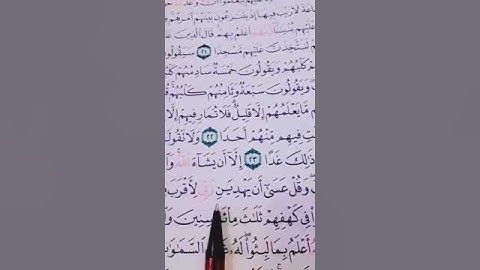 اعة لا ريب فيها إذ يتنازعون بينهم أمرهم
أعلم بهم قال الذين
لنتخذن عليهم مسجدا ٢١ سيقولون
كلبهم ويقولون خمسة سادسهم
ويقولون سبعة وثامنهم كلبهم
ما يعلمهم إلا قليل فلا تمار فيهم إلا
ت فيهم منهم أحدا ٢٢ ولا تقول
ذالك غدا ٢٣ إلا أن يشاء الله
وقل عسى أن يهدين ربي لأقرب
ا في كهفهم ثلث مائة سنين
أعلم بما لبثوا له غيب السموا